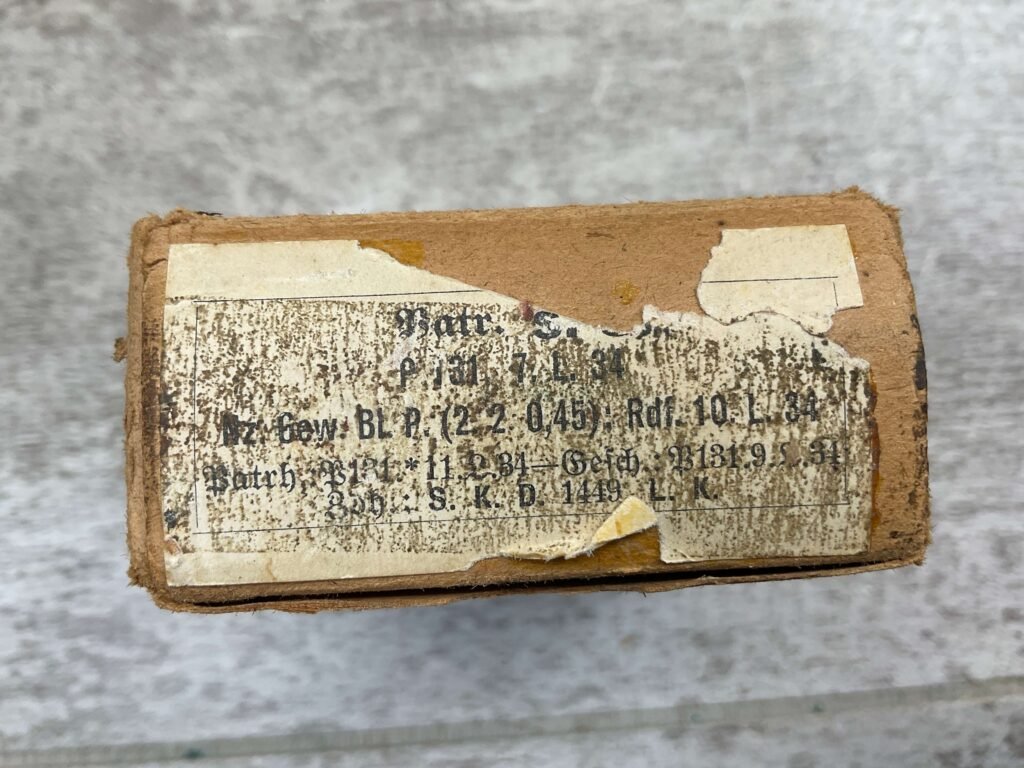 Patr. S.
P 131 7. L. 34
Nz. Gew. Bl. P. (2. 2. 0,45): Rdf. 10. L. 34
Patrh. P131.* 11. L. 34—Gesch.: P131. 9. L. 34
Zdh.: S. K. D. 1449 L. K.